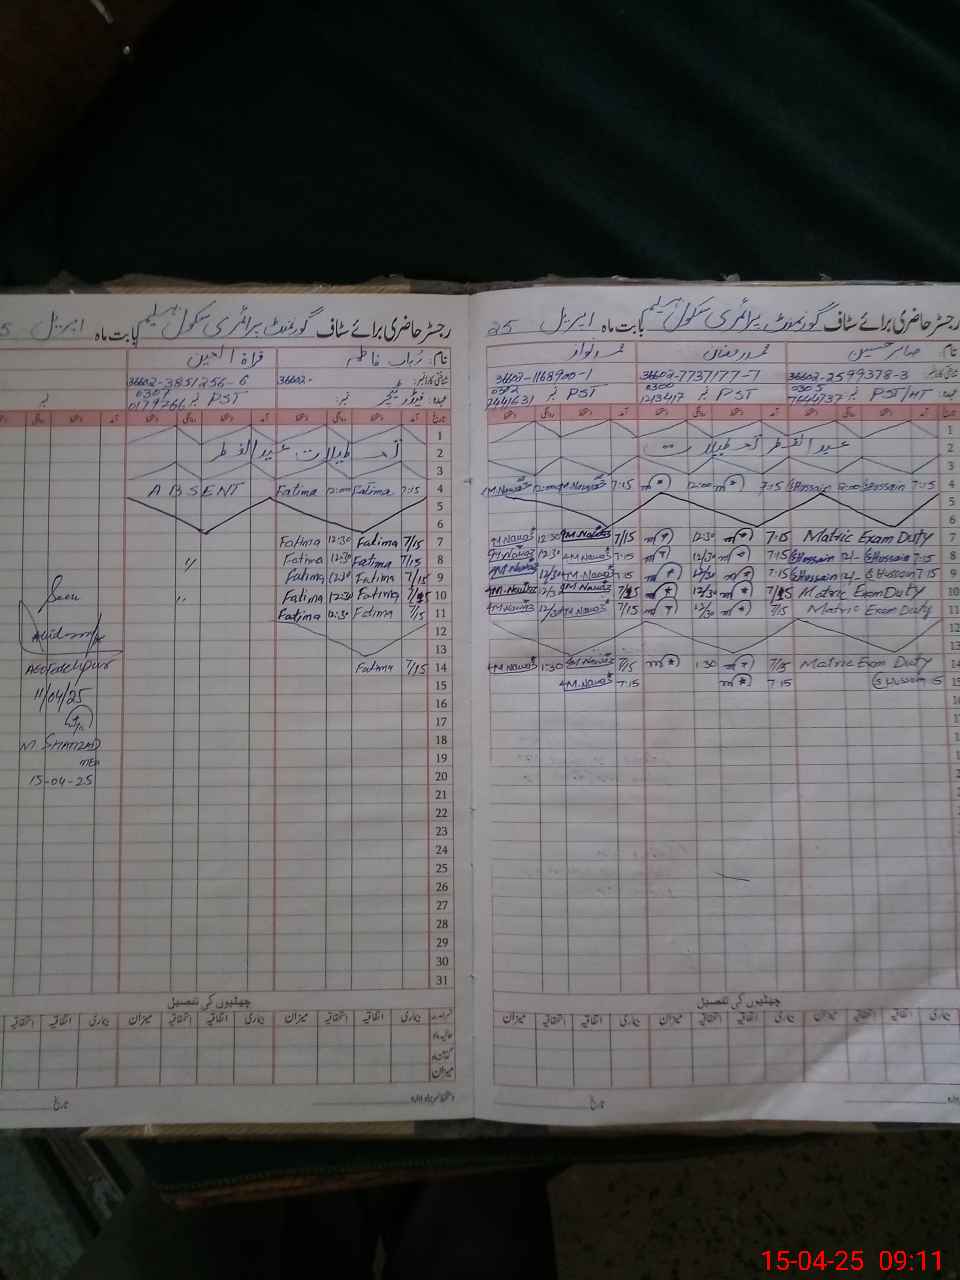 رجسٹر حاضری برائے سٹاف گورنمنٹ پرائمری سکول بابت ماہ اپریل 25
نام: صابر حسین محمد رمضان محمد نواز
36602-2599378-3 36602-7737177-7 36602-1168900-1
0305 0300
عہدہ: PST/HT نمبر 7444737 PST نمبر 1213417 PST نمبر 7441631
تاریخ آمد دستخط روانگی دستخط
1
2 عید الفطر تعطیلات
3
4 S Hussain 12:00 S Hussain 7:15 12:00 7:15 M.Nawaz 12:00 M.Nawaz 7:15
5
6
7 Matric Exam Duty 7:15 12:30 7/15 M.Nawaz 12:30 M.Nawaz
8 S Hussain 12/- S Hussain 7:15 7:15 12/30 7:15 M.Nawaz 12:30 M.Nawaz
9 S Hussain 12/- S Hussain 7:15 7:15 12/30 7:15 M.Nawaz 12/30 M.Nawaz
10 Matric Exam Duty 7/15 12/30 7/15 M.Nawaz M.Nawaz
11 Matric Exam Duty 7/15 12/30 7/15 M.Nawaz M.Nawaz
12
13
14 Matric Exam Duty 7/15 1:30 7/15 M.Nawaz 1:30 M.Nawaz
15 S Hussain 7:15 M.Nawaz 7:15
16
17
18
19
20
21
22
23
24
25
26
27
28
29
30
31
چھٹیوں کی تفصیل
جاری اتفاقیہ استحقاقیہ میزان
تاریخ
رجسٹر حاضری برائے سٹاف گورنمنٹ پرائمری سکول بابت ماہ اپریل
نام: رباب فاطمہ قراۃ العین
36602- 36602-3851256-6
0307
عہدہ: نمبر PST نمبر 0179766
تاریخ آمد دستخط روانگی دستخط
1
2 تعطیلات عید الفطر
3
4 Fatima 12:00 Fatima 7:15 ABSENT
5
6
7 Fatima 12:30 Fatima 7/15
8 Fatima 12:30 Fatima 7/15 "
9 Fatima 12:30 Fatima 7/15
10 Fatima 12:30 Fatima 7/15 "
11 Fatima 12:30 Fatima 7/15
12
13
14 Fatima 7/15
15
16
17
18
19
20
21
22
23
24
25
26
27
28
29
30
31
Seen
11/04/25
M SHAHZAD
MEA
15-04-25
چھٹیوں کی تفصیل
جاری اتفاقیہ استحقاقیہ میزان
میزان
تاریخ
15-04-25 09:11